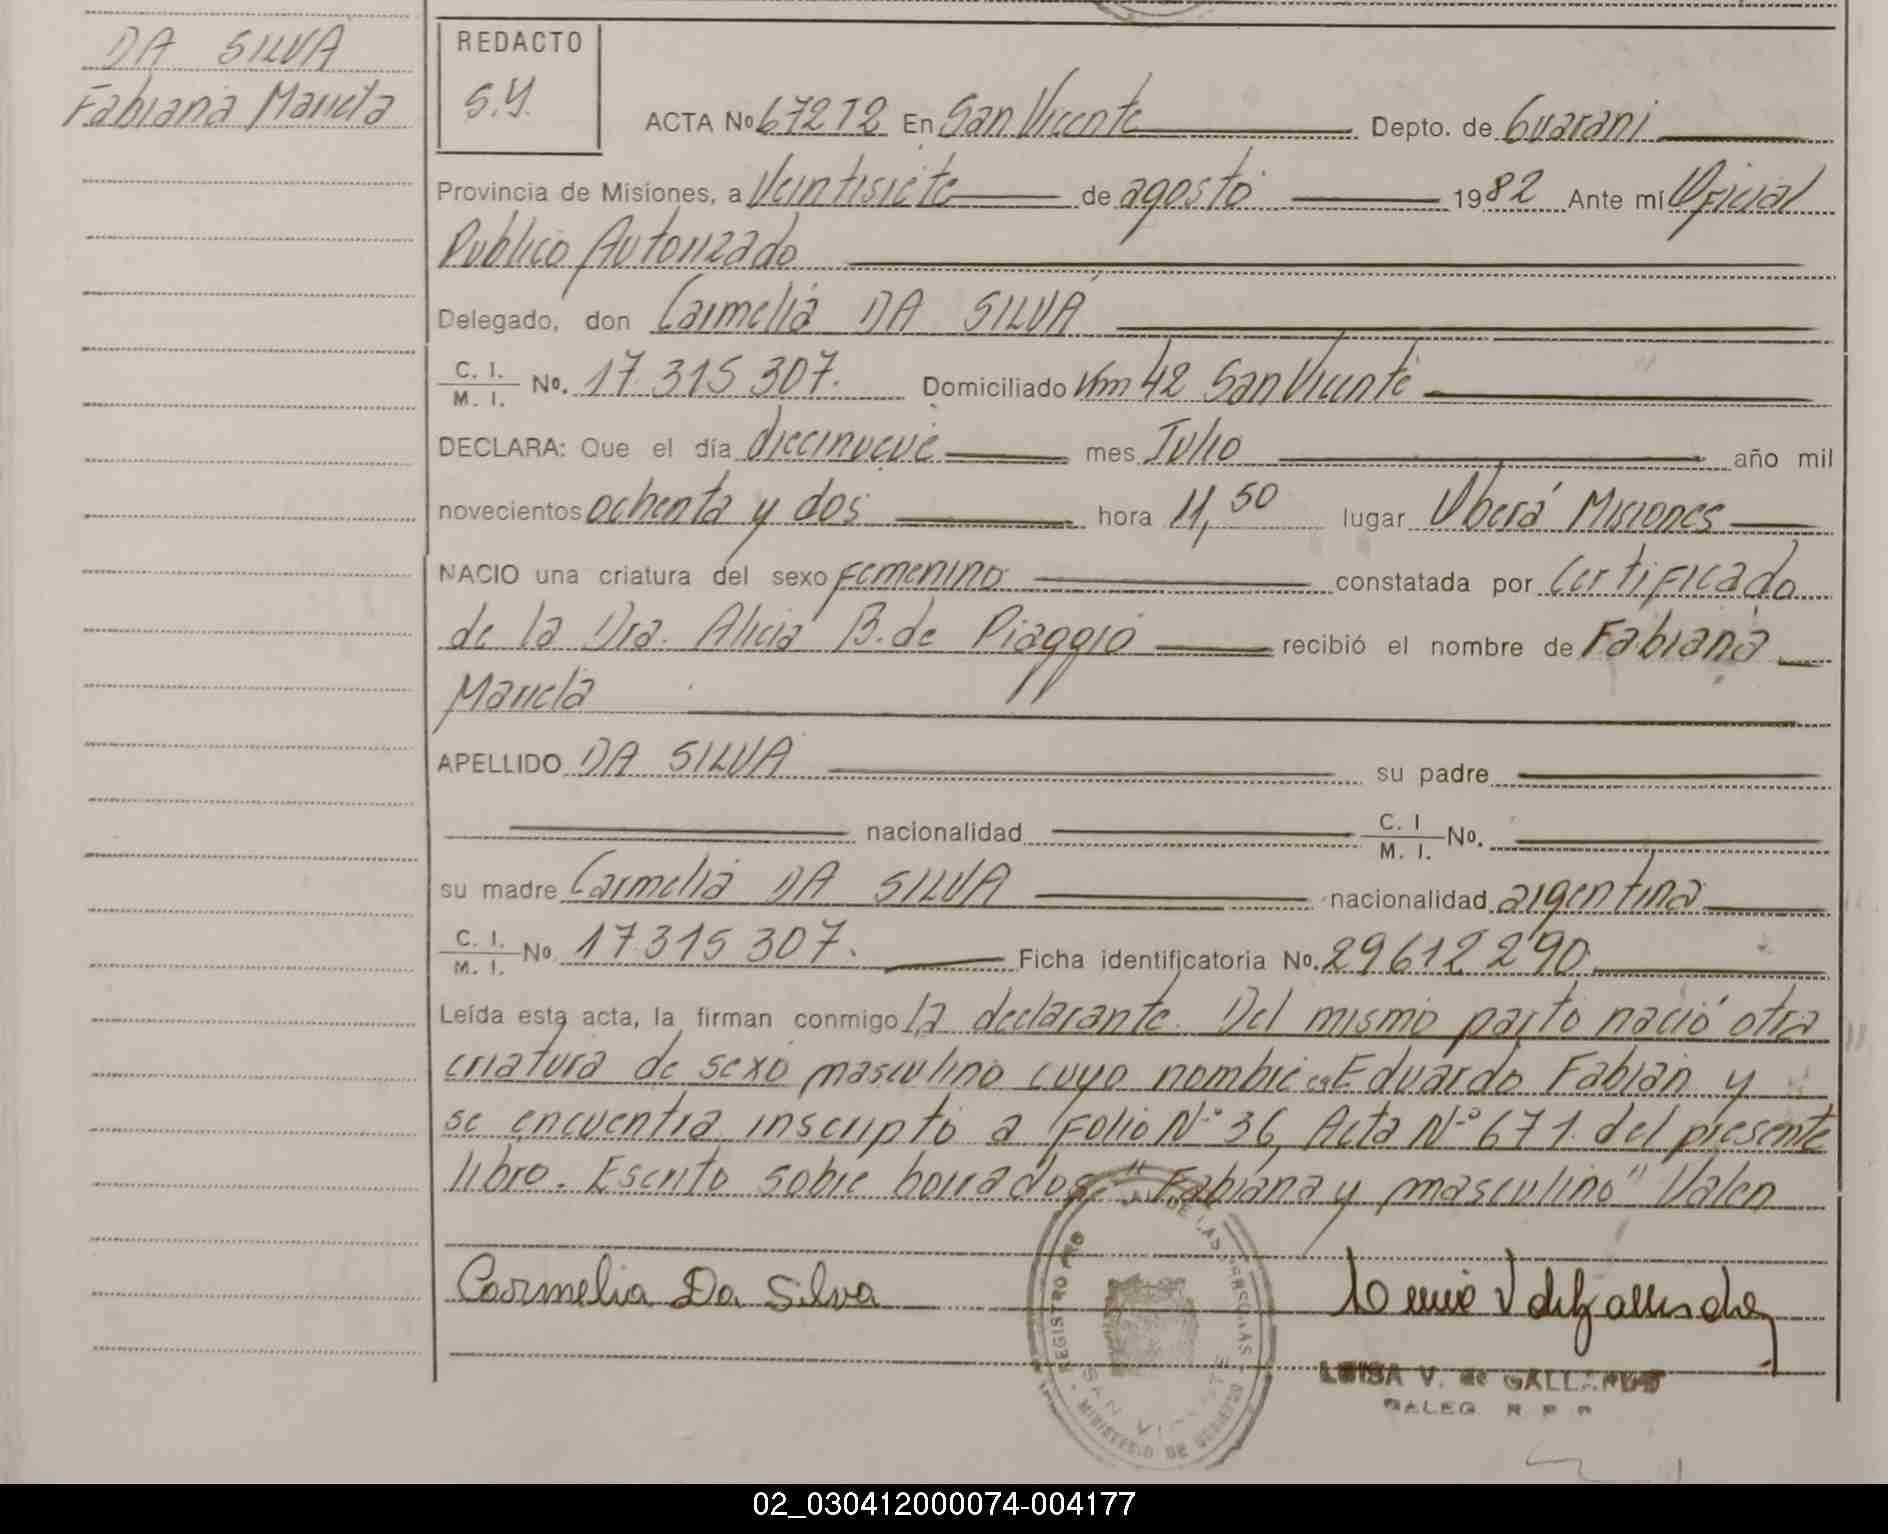 DA SILVA
Fabiana Maricla
REDACTO
S.Y.
ACTA No 672 T2 En San Vicente Depto. de Guaraní
Provincia de Misiones, a Veintisiete de agosto 1982 Ante mí Oficial
Publico Autorizado
Delegado, don Carmelia DA SILVA
C. I.
M. I. No. 17.315.307. Domiciliado Km 42 San Vicente
DECLARA: Que el día diecinueve mes Julio año mil
novecientos ochenta y dos hora 11,50 lugar Oberá Misiones
NACIO una criatura del sexo femenino constatada por Certificado
de la Dra. Alicia B. de Piaggio recibió el nombre de Fabiana
Maricla
APELLIDO DA SILVA su padre
nacionalidad C. I
M. I. No.
su madre Carmelia DA SILVA nacionalidad argentina
C. I.
M. I. No 17.315.307. Ficha identificatoria No. 29612290
Leída esta acta, la firman conmigo la declarante. Del mismo parto nació otra
criatura de sexo masculino cuyo nombre es Eduardo Fabián y
se encuentra inscripto a Folio N° 36, Acta N° 671. del presente
libro. Escrito sobre borrados "Fabiana y masculino" Valen
Carmelia Da Silva
REGISTRO PRO DE LAS PERSONAS
SAN VICENTE
MINISTERIO DE GOBIERNO
LUISA V. de GALLARDO
02_030412000074-004177